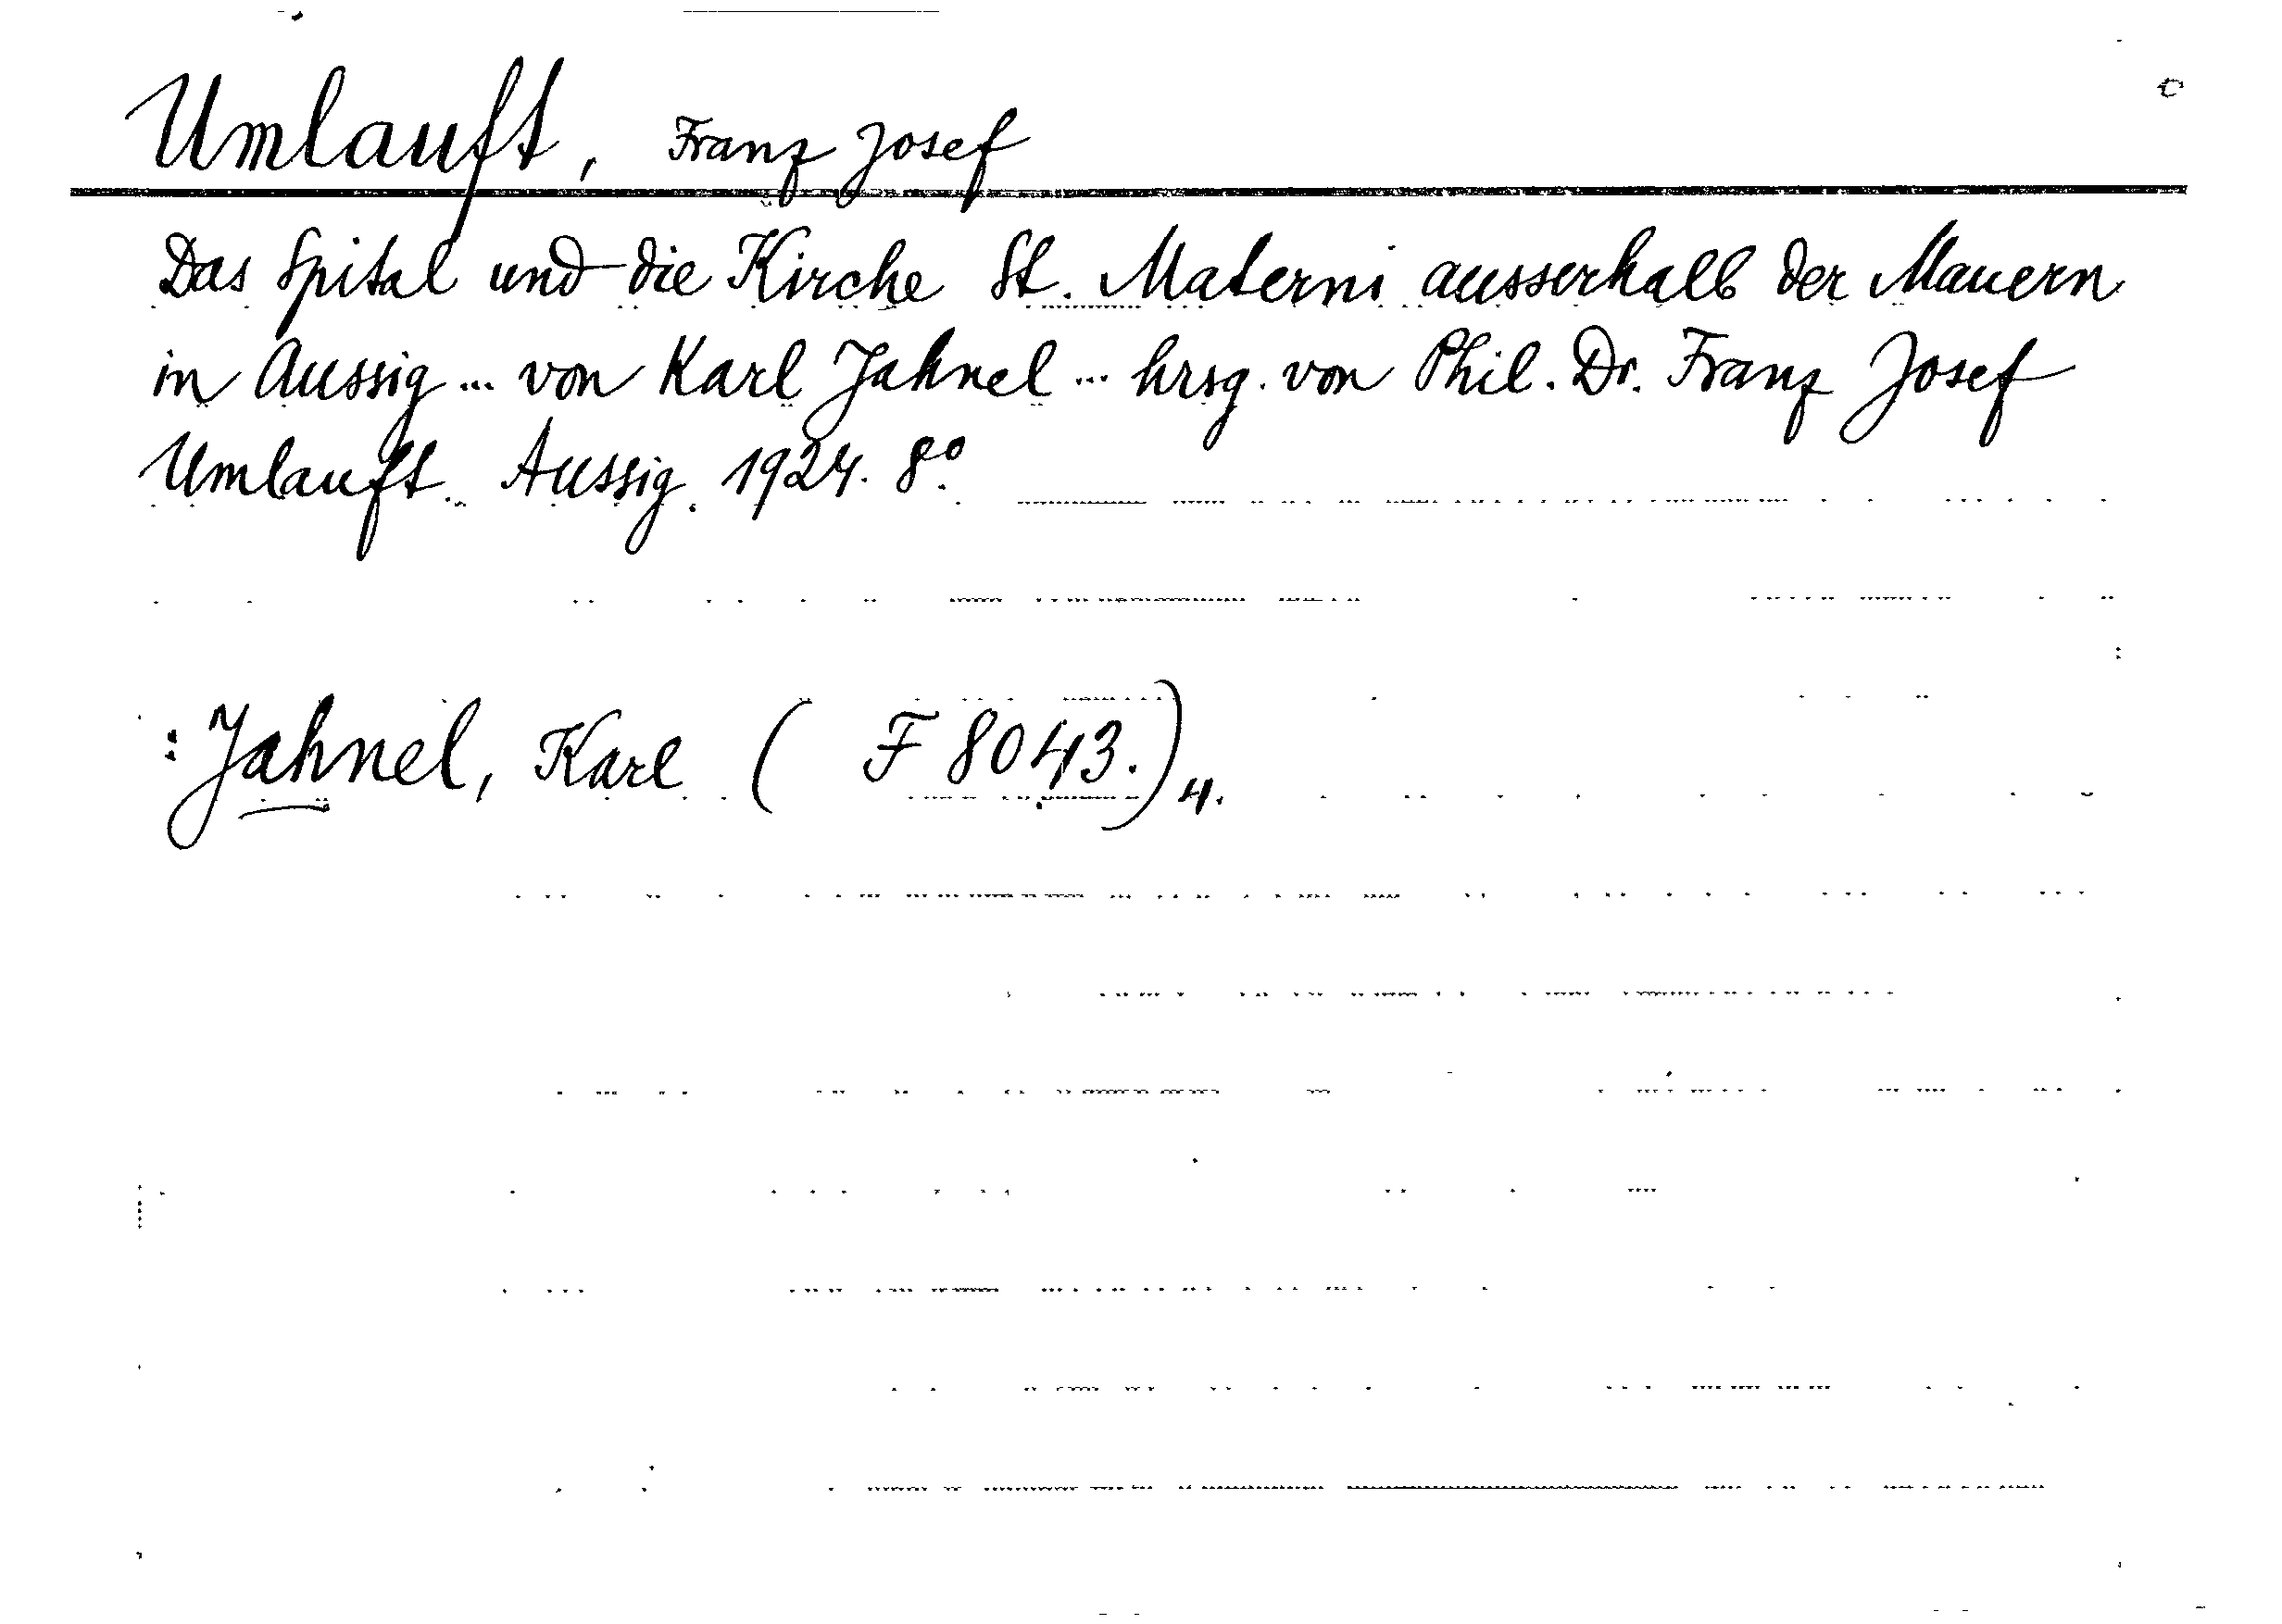 Umlauft, Franz Josef
Das Spital und die Kirche St. Materni ausserhalb der Mauern
in Aussig ... von Karl Jahnel ... hrsg. von Phil. Dr. Franz Josef
Umlauft. Aussig. 1924. 8°.
: Jahnel, Karl ( F 8043.) 4.